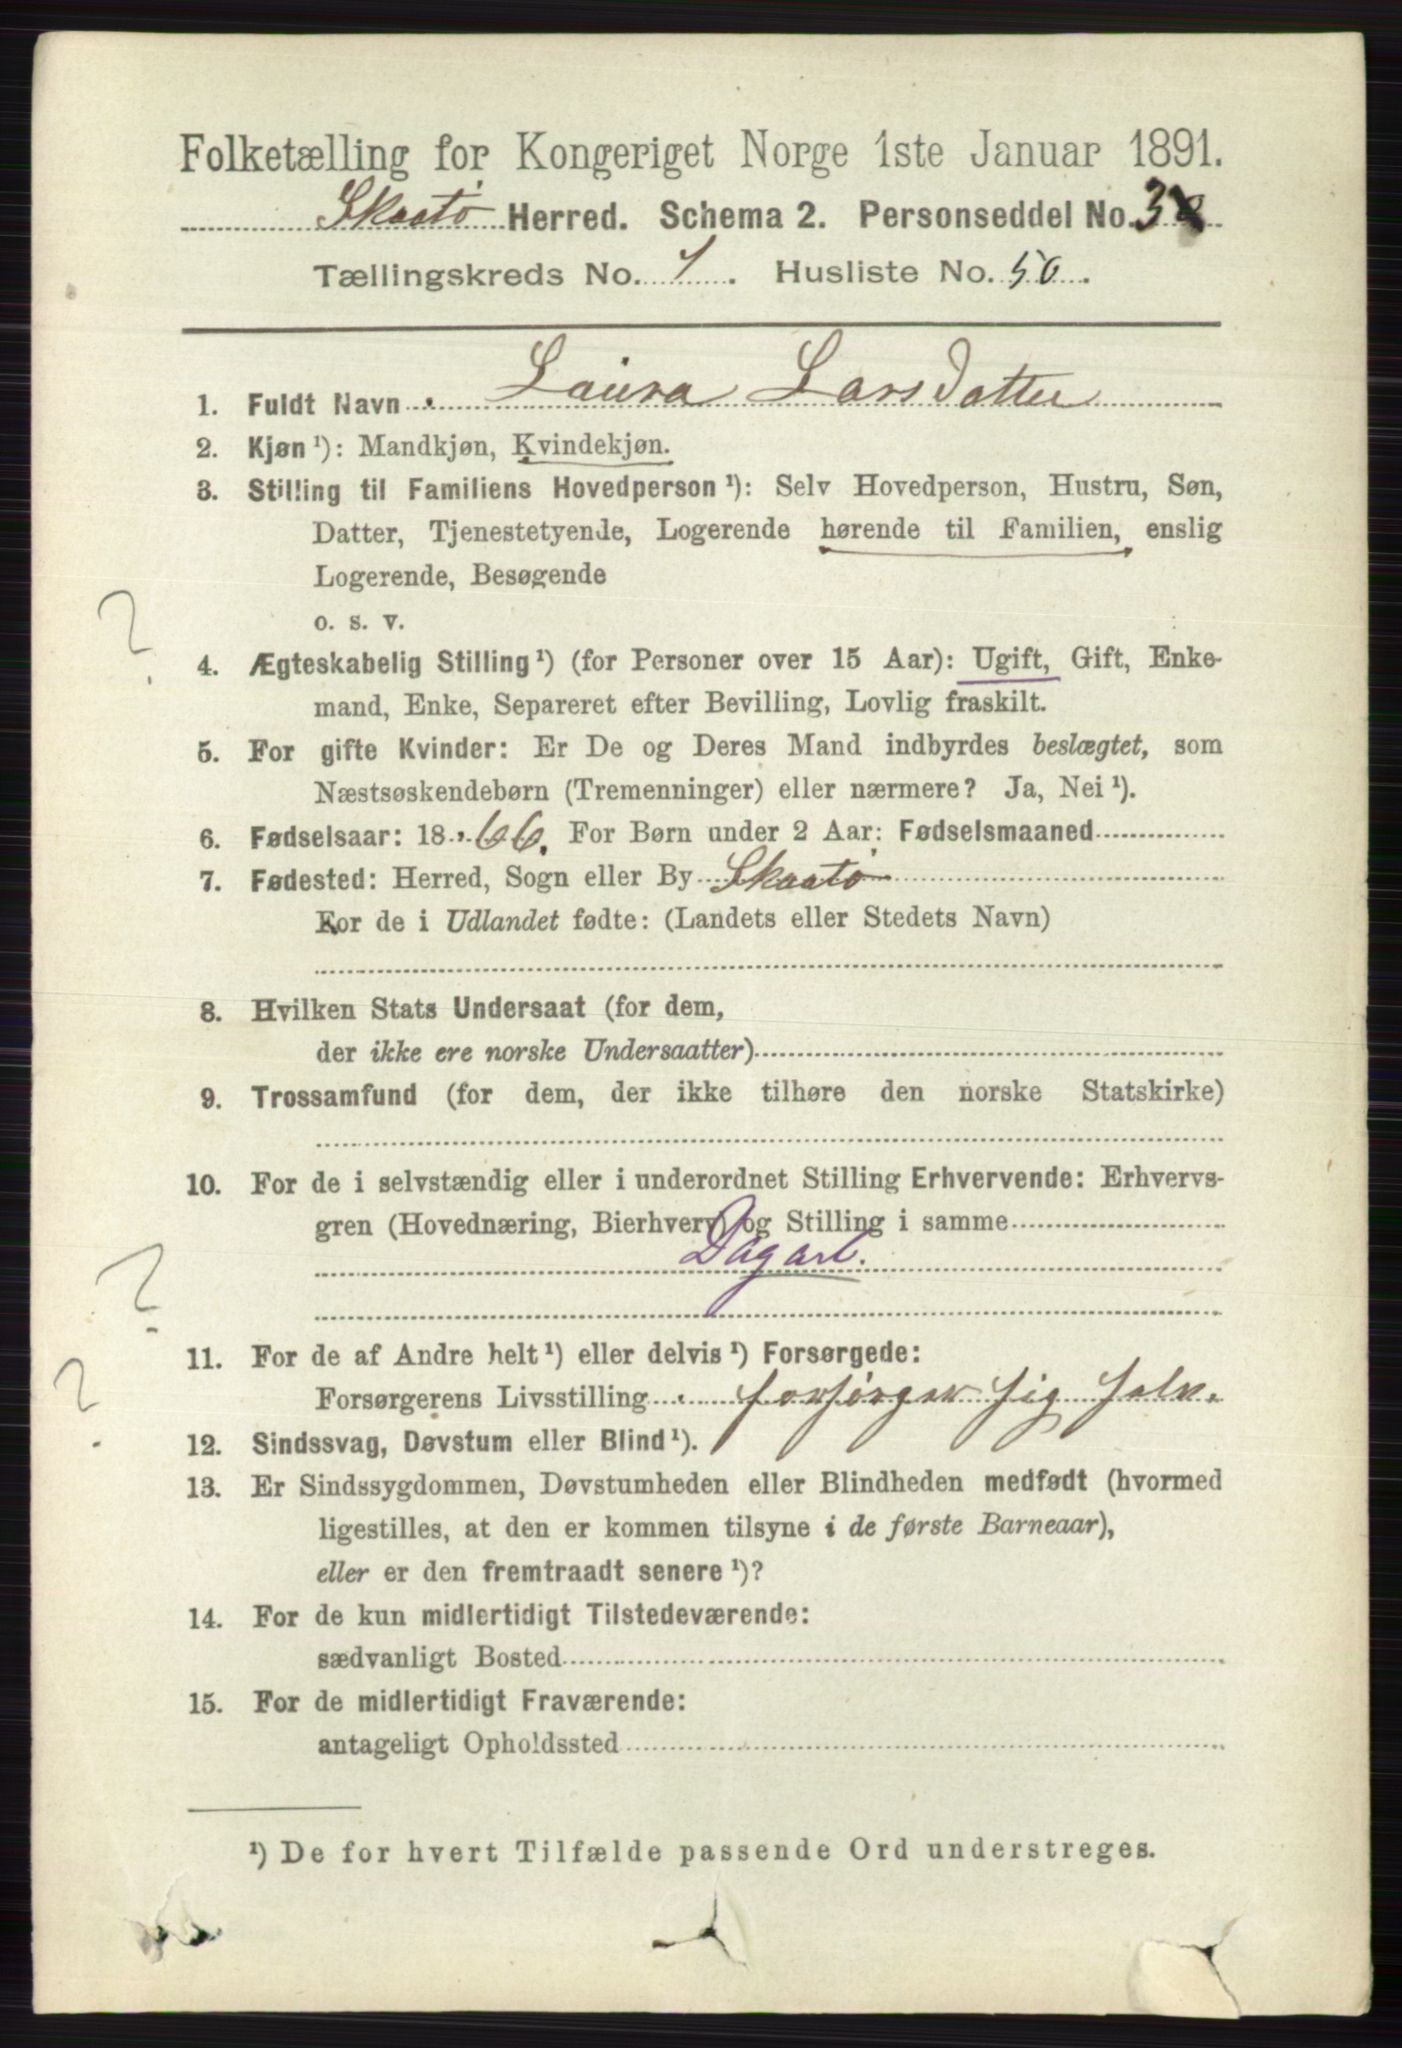 Folketælling for Kongeriget Norge 1ste Januar 1891.
Skaatø Herred. Schema 2. Personseddel No. 3
Tællingskreds No. 1. Husliste No. 50.
1. Fuldt Navn Laura Larsdatter
2. Kjøn ¹): Mandkjøn, Kvindekjøn.
3. Stilling til Familiens Hovedperson ¹): Selv Hovedperson, Hustru, Søn,
Datter, Tjenestetyende, Logerende hørende til Familien, enslig
Logerende, Besøgende
o. s. v.
?
4. Ægteskabelig Stilling ¹) (for Personer over 15 Aar): Ugift, Gift, Enke-
mand, Enke, Separeret efter Bevilling, Lovlig fraskilt.
5. For gifte Kvinder: Er De og Deres Mand indbyrdes beslægtet, som
Næstsøskendebørn (Tremenninger) eller nærmere? Ja, Nei ¹).
6. Fødselsaar: 1866. For Børn under 2 Aar: Fødselsmaaned
7. Fødested: Herred, Sogn eller By Skaatø
For de i Udlandet fødte: (Landets eller Stedets Navn)
8. Hvilken Stats Undersaat (for dem,
der ikke ere norske Undersaatter)
9. Trossamfund (for dem, der ikke tilhøre den norske Statskirke)
10. For de i selvstændig eller i underordnet Stilling Erhvervende: Erhvervs-
gren (Hovednæring, Bierhverv) og Stilling i samme
? Dagarb.
11. For de af Andre helt ¹) eller delvis ¹) Forsørgede:
? Forsørgerens Livsstilling forsørger sig selv.
12. Sindssvag, Døvstum eller Blind ¹).
13. Er Sindssygdommen, Døvstumheden eller Blindheden medfødt (hvormed
ligestilles, at den er kommen tilsyne i de første Barneaar),
eller er den fremtraadt senere ¹)?
14. For de kun midlertidigt Tilstedeværende:
sædvanligt Bosted
15. For de midlertidigt Fraværende:
antageligt Opholdssted
¹) De for hvert Tilfælde passende Ord understreges.